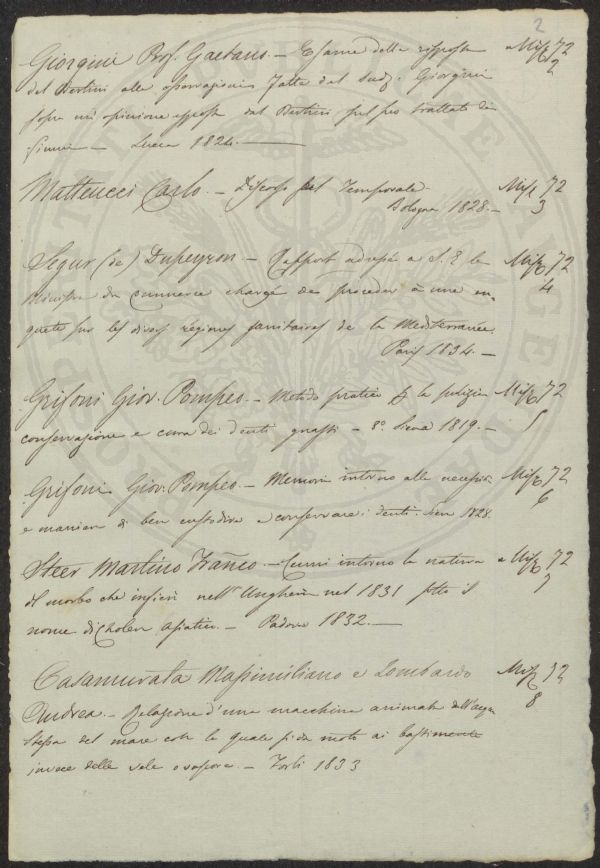 2
Giorgini Prof. Gaetano. — Esame delle risposte a Misc. 72
del Bertini alle osservazioni fatte dal Sud. Giorgini 2
sopra un' opinione esposta dal Bertini sul suo trattato di
— Lucca 1824. —
Matteucci Carlo. — Discorso sul Temporale. Misc. 72
Bologna 1828. — 3
Segur (de) Dupeyron — Rapport adressé a S. E le Misc. 72
Ministre du Commerce chargé de proceder à une en, 4
quete sur les divers régimes sanitaires de la Mediterranée.
Paris 1834. —
Grifoni Giov. Pompeo. — Metodo pratico p la pulizia Misc. 72
conservazione e cura dei denti guasti — 8.º Siena 1819. — 5
Grifoni Giov. Pompeo. — Memoria intorno alla necessità Misc. 72
e maniera di ben custodire e conservare i denti. Siena 1828. 6
Steer Martino Franco. — Cenni intorno la natura a Misc. 72
del morbo che infierì nell' Ungheria nel 1831 sotto il 7
nome di Cholera asiatico. — Padova 1832. —
Casamurata Massimiliano e Lombardo Misc. 72
Andrea. — Relazione d'una macchina animata dall'acqua 8
stessa del mare con la quale si da moto ai bastimenti
invece delle vele o vapore. — Forlì 1833